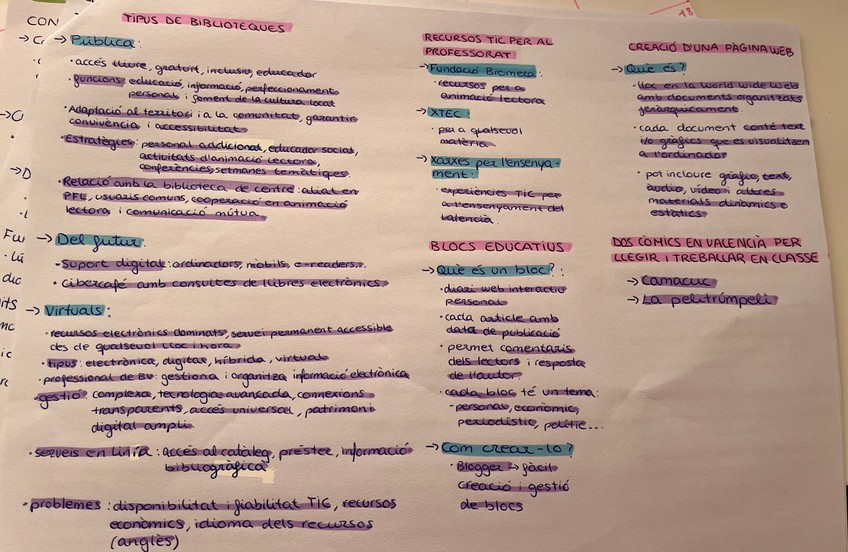 TIPUS DE BIBLIOTEQUES
→ Pública:
· accés lliure, gratuït, inclusiu, educador
· funcions: educació, informació, perfeccionament
personal i foment de la cultura local
· Adaptació al territori i a la comunitat, garantir
convivència i accessibilitat.
· Estratègies: personal addicional, educador social,
activitats d'animació lectora,
conferències, setmanes temàtiques.
· Relació amb la biblioteca de centre: aliat en
PFL, usuaris comuns, cooperació en animació
lectora i comunicació mútua.
→ Del futur:
· Suport digital: ordinadors, mòbils, e-readers...
· Cibercafé amb consultes de llibres electrònics.
→ Virtuals:
· recursos electrònics dominats, servei permanent accessible
des de qualsevol lloc i hora.
· tipus: electrònica, digital, híbrida, virtual
· professional de BV: gestiona i organitza informació electrònica
· gestió: complexa, tecnologia avançada, connexions
transparents, accés universal, patrimoni
digital ampli
· serveis en línia: accés al catàleg, préstec, informació
bibliogràfica
· problemes: disponibilitat i fiabilitat TIC, recursos
econòmics, idioma dels recursos
(anglès)
RECURSOS TIC PER AL
PROFESSORAT
→ Fundació Bromera:
· recursos per a
animació lectora
→ XTEC:
· per a qualsevol
matèria.
→ Xarxes per l'ensenya-
ment:
· experiències TIC per
a l'ensenyament del
valencià.
BLOCS EDUCATIUS
→ Què és un bloc?:
· diari web interactiu
personal
· cada article amb
data de publicació
· permet comentaris
dels lectors i resposta
de l'autor.
· cada bloc té un tema:
personal, econòmic,
periodístic, polític...
→ Com crear-lo?
· Blogger → fàcil
creació i gestió
de blocs
CREACIÓ D'UNA PÀGINA WEB
→ Què és?
· lloc en la world wide web
amb documents organitzats
jeràrquicament.
· cada document conté text
i/o gràfics que es visualitzen
a l'ordinador
· pot incloure gràfic, text,
àudio, vídeo i altres
materials dinàmics o
estàtics.
DOS CÒMICS EN VALENCIÀ PER
LLEGIR I TREBALLAR EN CLASSE
→ Camacuc
→ La pelitrúmpeli
CON